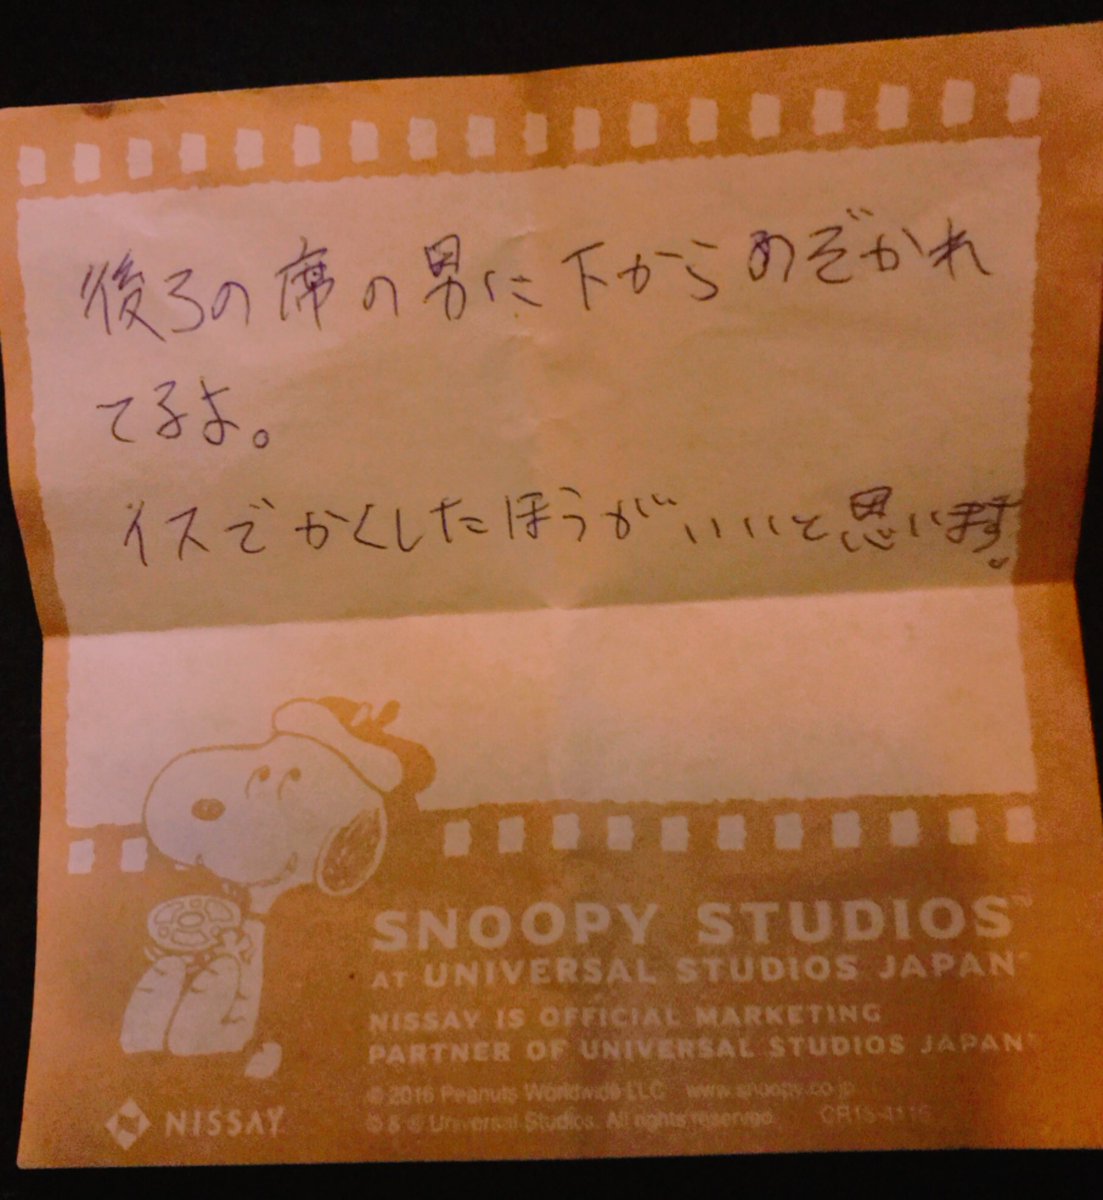 後ろの席の男に下からのぞかれ
てるよ。
イスでかくしたほうがいいと思います。
SNOOPY STUDIOS™
AT UNIVERSAL STUDIOS JAPAN®
NISSAY IS OFFICIAL MARKETING
PARTNER OF UNIVERSAL STUDIOS JAPAN®
© 2016 Peanuts Worldwide LLC www.snoopy.co.jp
© & ® Universal Studios. All rights reserved.
NISSAY